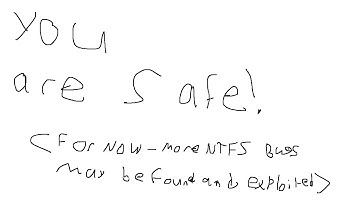 you
are safe!
(For now - more NTFS bugs
may be found and exploited)